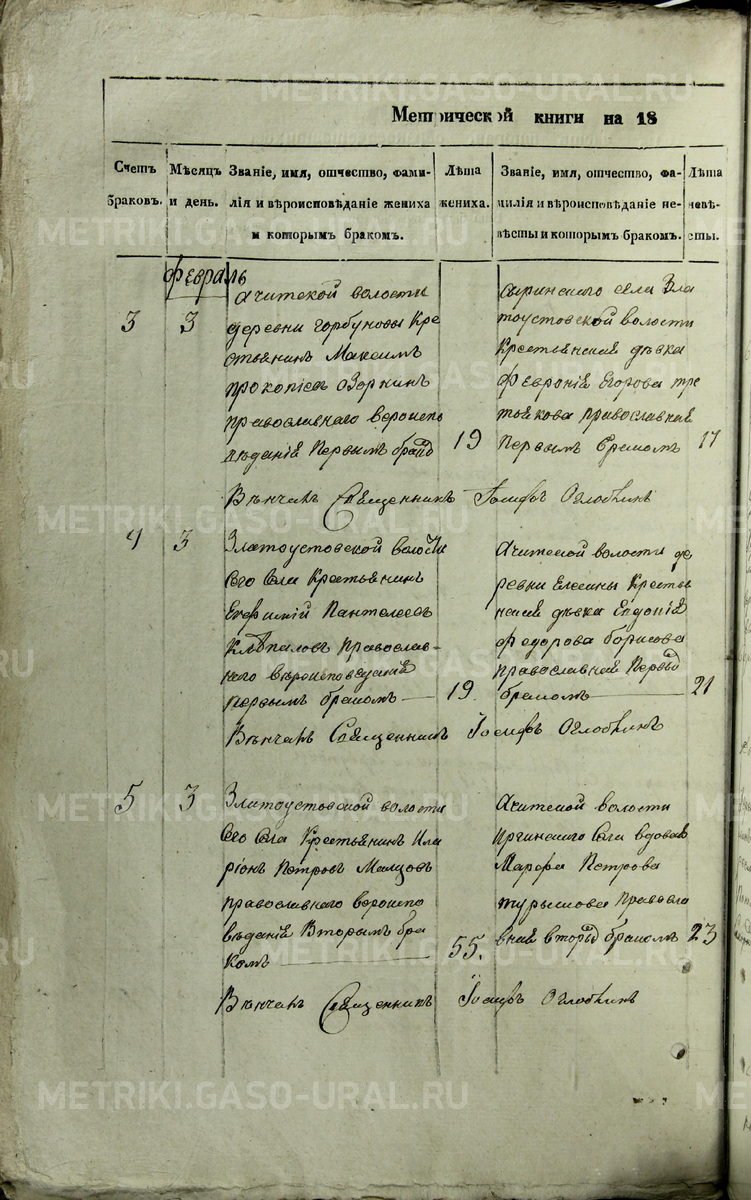 Метрической книги на 18
Счетъ браковъ.
Мѣсяцъ и день.
Званіе, имя, отчество, фами-
лія и вѣроисповѣданіе жениха
и которымъ бракомъ.
Лѣта
жениха.
Званіе, имя, отчество, фа-
милія и вѣроисповѣданіе не-
вѣсты и которымъ бракомъ.
Лѣта
невѣ-
сты.
Февраль
3
3
Ачитской волости
деревни Горбуновы Кре
стьянинъ Максимъ
Прокопіевъ Озорнинъ
православнаго вероиспо
ведания Первымъ
19
села Зла
тоустовской волости
Крестьянская дѣвка
Феврония Егорова Тре
тьякова православная
Первымъ бракомъ
17
Вѣнчалъ Священникъ Іосифъ Оглоблинъ
4
3
Златоустовской волости
Сего Села Крестьянинъ
Ефимий Пантелеевъ
Православ-
наго вѣроисповедания
первымъ бракомъ
19.
Ачитской волости де
ревни Крестья
нская дѣвка Евдокия
Федорова Борисова
православная
бракомъ
21
Вѣнчалъ Священникъ Іосифъ Оглоблинъ
5
3
Златоустовской волости
Сего Села Крестьянинъ Ила
ріонъ Петровъ Малцовъ
православнаго вероиспо
веданія Вторымъ бра
комъ
55.
Ачитской волости
Иргинского Села вдова
Марфа Петрова
Турышова Правосла
вная бракомъ
23
Вѣнчалъ Священникъ Іосифъ Оглоблинъ
METRIKI.GASO-URAL.RU